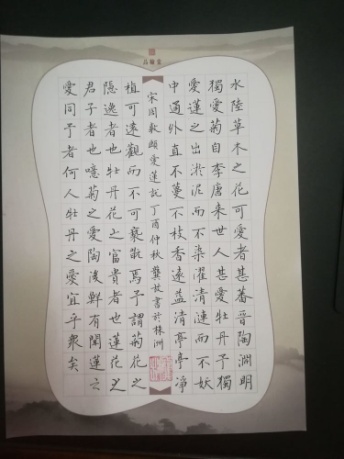 水陸草木之花可愛者甚蕃晉陶淵明
獨愛菊自李唐来世人甚愛牡丹予獨
愛蓮之出淤泥而不染濯清漣而不妖
中通外直不蔓不枝香遠益清亭亭淨
宋周敦頤愛蓮說丁酉仲秋龔書於株洲
植可遠觀而不可褻翫焉予謂菊花之
隱逸者也牡丹花之富貴者也蓮花之
君子者也噫菊之愛陶後鮮有聞蓮之
愛同予者何人牡丹之愛宜乎衆矣